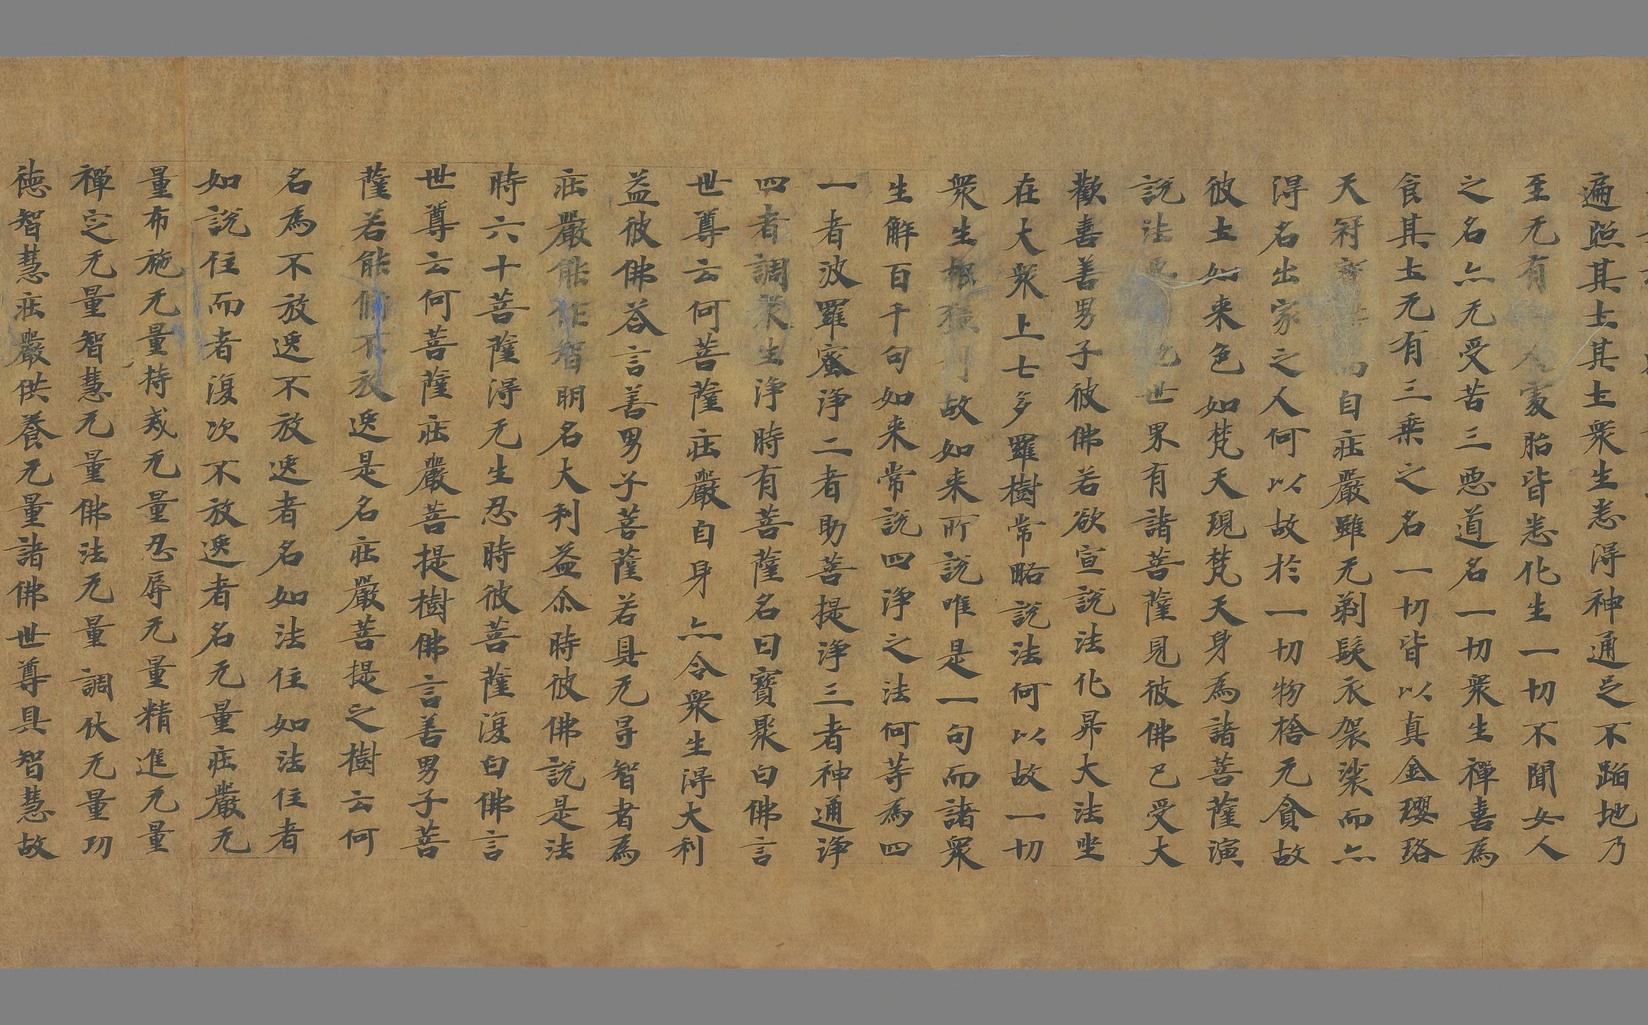 遍照其土其土衆生悉得神通足不蹈地乃
至无有人處胎皆悉化生一切不聞女人
之名亦无受苦三惡道名一切衆生禪喜為
食其土无有三乗之名一切皆以真金瓔珞
天冠而自莊嚴雖无剃髮衣袈裟而亦
得名出家之人何以故於一切物捨无貪故
彼土如来色如梵天現梵天身為諸菩薩演
說法世界有諸菩薩見彼佛已受大
歡喜善男子彼佛若欲宣說法化昇大法坐
在大衆上七多羅樹常略說法何以故一切
衆生根猛利故如来所說唯是一句而諸衆
生解百千句如来常說四淨之法何等為四
一者波羅蜜淨二者助菩提淨三者神通淨
四者調衆生淨時有菩薩名曰寶聚白佛言
世尊云何菩薩莊嚴自身亦令衆生得大利
益彼佛荅言善男子菩薩若具无㝵智者為
莊嚴能作智明名大利益尒時彼佛說是法
時六十菩薩得无生忍時彼菩薩復白佛言
世尊云何菩薩莊嚴菩提樹佛言善男子菩
薩若能脩不放逸是名莊嚴菩提之樹云何
名為不放逸不放逸者名如法住如法住者
如說住而者復次不放逸者名无量莊嚴无
量布施无量持戒无量忍辱无量精進无量
禪定无量智慧无量佛法无量調伏无量功
德智慧莊嚴供養无量諸佛世尊具智慧故